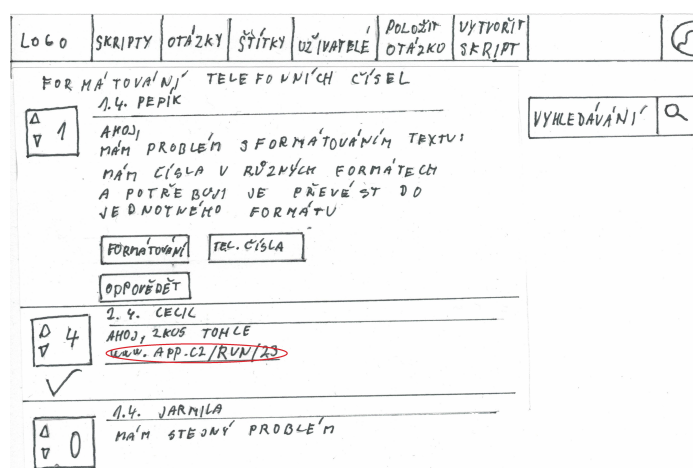 LOGO SKRIPTY OTÁZKY ŠTÍTKY UŽIVATELÉ POLOŽIT OTÁZKU VYTVOŘIT SKRIPT
FORMÁTOVÁNÍ TELEFONNÍCH ČÍSEL
1.4. PEPÍK
1
AHOJ,
MÁM PROBLÉM S FORMÁTOVÁNÍM TEXTU:
MÁM ČÍSLA V RŮZNÝCH FORMÁTECH
A POTŘEBUJI JE PŘEVÉST DO
JEDNOTNÉHO FORMÁTU
VYHLEDÁVÁNÍ
FORMÁTOVÁNÍ TEL. ČÍSLA
ODPOVĚDĚT
2.4. CECIL
4
AHOJ, ZKUS TOHLE
www.APP.CZ/RUN/23
1.4. JARMILA
0
MÁM STEJNÝ PROBLÉM